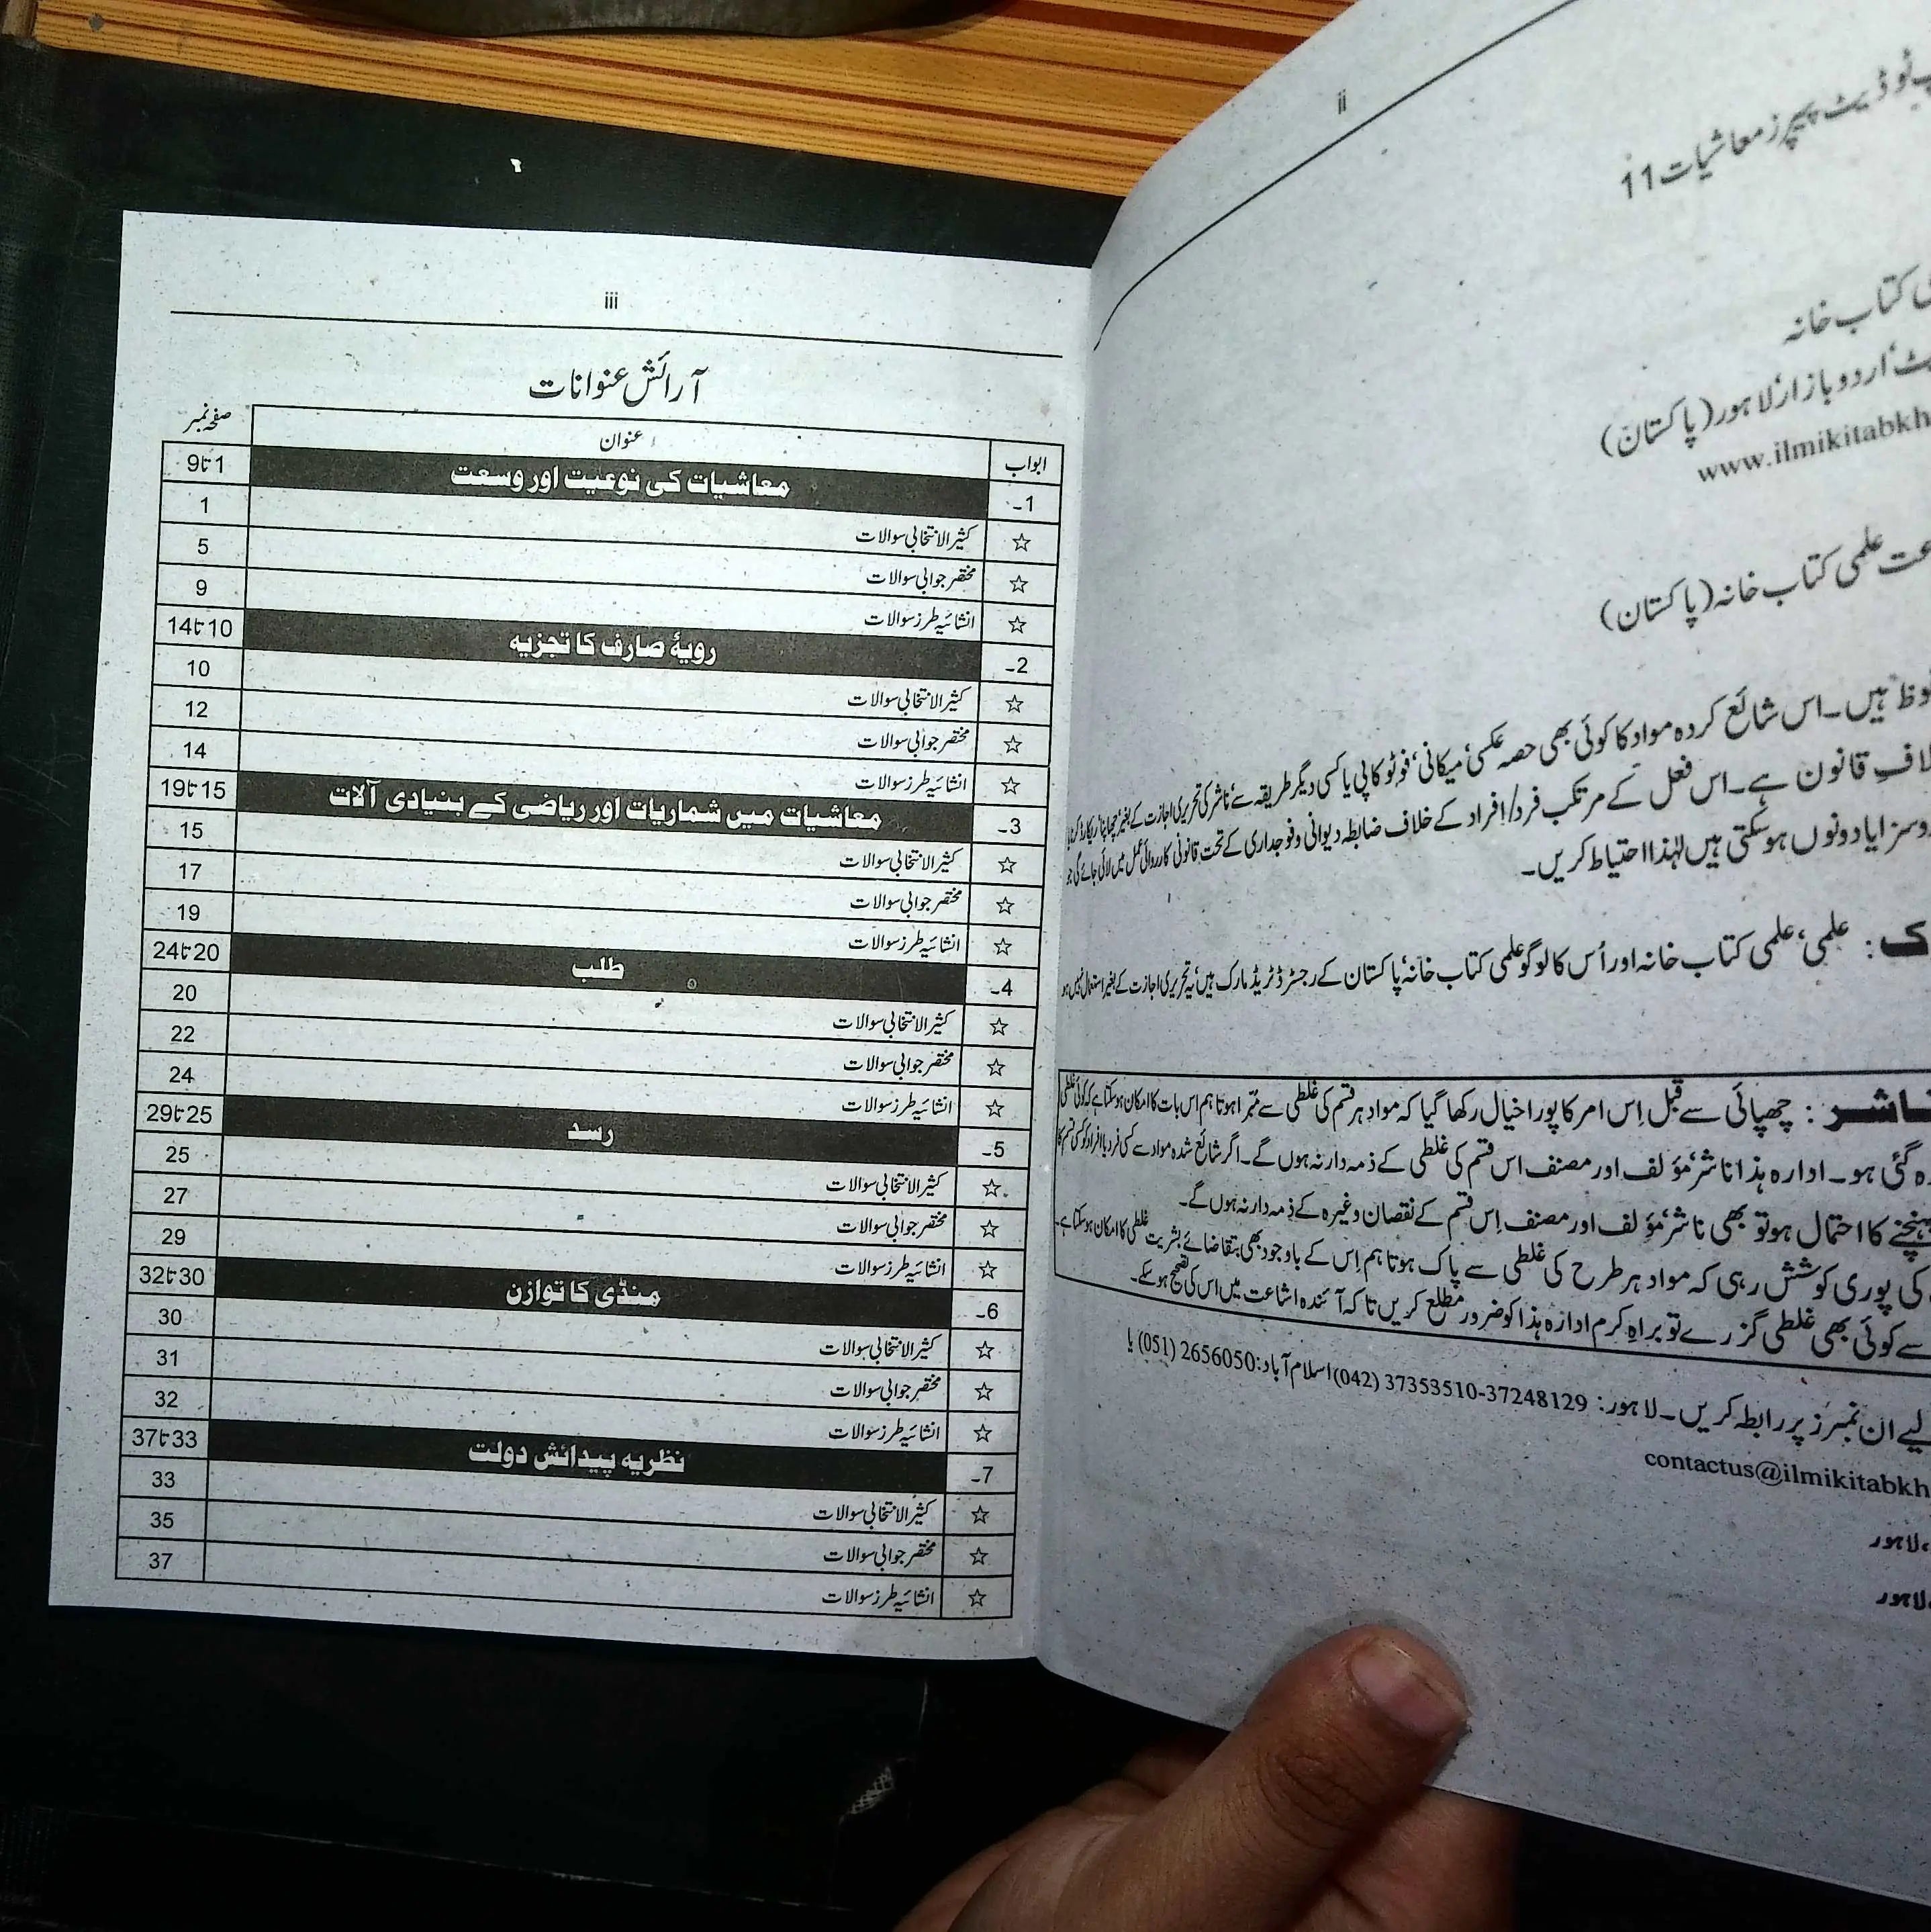 ii
پیپرز معاشیات 11
کتاب خانہ
اردو بازار، لاہور (پاکستان)
علمی کتاب خانہ (پاکستان)
ہیں۔ اس شائع کردہ مواد کا کوئی بھی حصہ عکسی، میکانی، فوٹو کاپی یا کسی دیگر طریقہ سے، ناشر کی تحریری اجازت کے بغیر چھاپنا، ریکارڈ کرنا
قانون ہے۔ اس فعل کے مرتکب فرد/افراد کے خلاف ضابطہ دیوانی و فوجداری کے تحت قانونی کارروائی عمل میں لائی جائے گی جو
یا دونوں ہو سکتی ہیں لہٰذا احتیاط کریں۔
علمی، علمی کتاب خانہ اور اُس کا لوگو علمی کتاب خانہ، پاکستان کے رجسٹرڈ ٹریڈ مارک ہیں، یہ تحریری اجازت کے بغیر استعمال نہیں ہو
چھپائی سے قبل اِس امر کا پورا خیال رکھا گیا کہ مواد ہر قسم کی غلطی سے مبرا ہو تاہم اس بات کا امکان ہو سکتا ہے کہ کوئی غلطی
گئی ہو۔ ادارہ ہذا ناشر، مؤلف اور مصنف اس قسم کی غلطی کے ذمہ دار نہ ہوں گے۔ اگر شائع شدہ مواد سے کسی فرد یا افراد کو کسی قسم کا
کا احتمال ہو تو بھی ناشر، مؤلف اور مصنف اِس قسم کے نقصان وغیرہ کے ذمہ دار نہ ہوں گے۔
کی پوری کوشش رہی کہ مواد ہر طرح کی غلطی سے پاک ہو تاہم اِس کے باوجود بھی بتقاضائے بشریت غلطی کا امکان ہو سکتا ہے۔
سے کوئی بھی غلطی گزرے تو براہِ کرم ادارہ ہذا کو ضرور مطلع کریں تاکہ آئندہ اشاعت میں اس کی تصحیح ہو سکے۔
لیے ان نمبرز پر رابطہ کریں۔ لاہور: 37248129-37353510 (042) اسلام آباد: 2656050 (051) یا
لاہور
لاہور
iii
آرائش عنوانات
ابواب عنوان صفحہ نمبر
1۔ معاشیات کی نوعیت اور وسعت 1 تا 9
☆ کثیر الانتخابی سوالات 1
☆ مختصر جوابی سوالات 5
☆ انشائیہ طرز سوالات 9
2۔ رویۂ صارف کا تجزیہ 10 تا 14
☆ کثیر الانتخابی سوالات 10
☆ مختصر جوابی سوالات 12
☆ انشائیہ طرز سوالات 14
3۔ معاشیات میں شماریات اور ریاضی کے بنیادی آلات 15 تا 19
☆ کثیر الانتخابی سوالات 15
☆ مختصر جوابی سوالات 17
☆ انشائیہ طرز سوالات 19
4۔ طلب 20 تا 24
☆ کثیر الانتخابی سوالات 20
☆ مختصر جوابی سوالات 22
☆ انشائیہ طرز سوالات 24
5۔ رسد 25 تا 29
☆ کثیر الانتخابی سوالات 25
☆ مختصر جوابی سوالات 27
☆ انشائیہ طرز سوالات 29
6۔ منڈی کا توازن 30 تا 32
☆ کثیر الانتخابی سوالات 30
☆ مختصر جوابی سوالات 31
☆ انشائیہ طرز سوالات 32
7۔ نظریہ پیدائش دولت 33 تا 37
☆ کثیر الانتخابی سوالات 33
☆ مختصر جوابی سوالات 35
☆ انشائیہ طرز سوالات 37